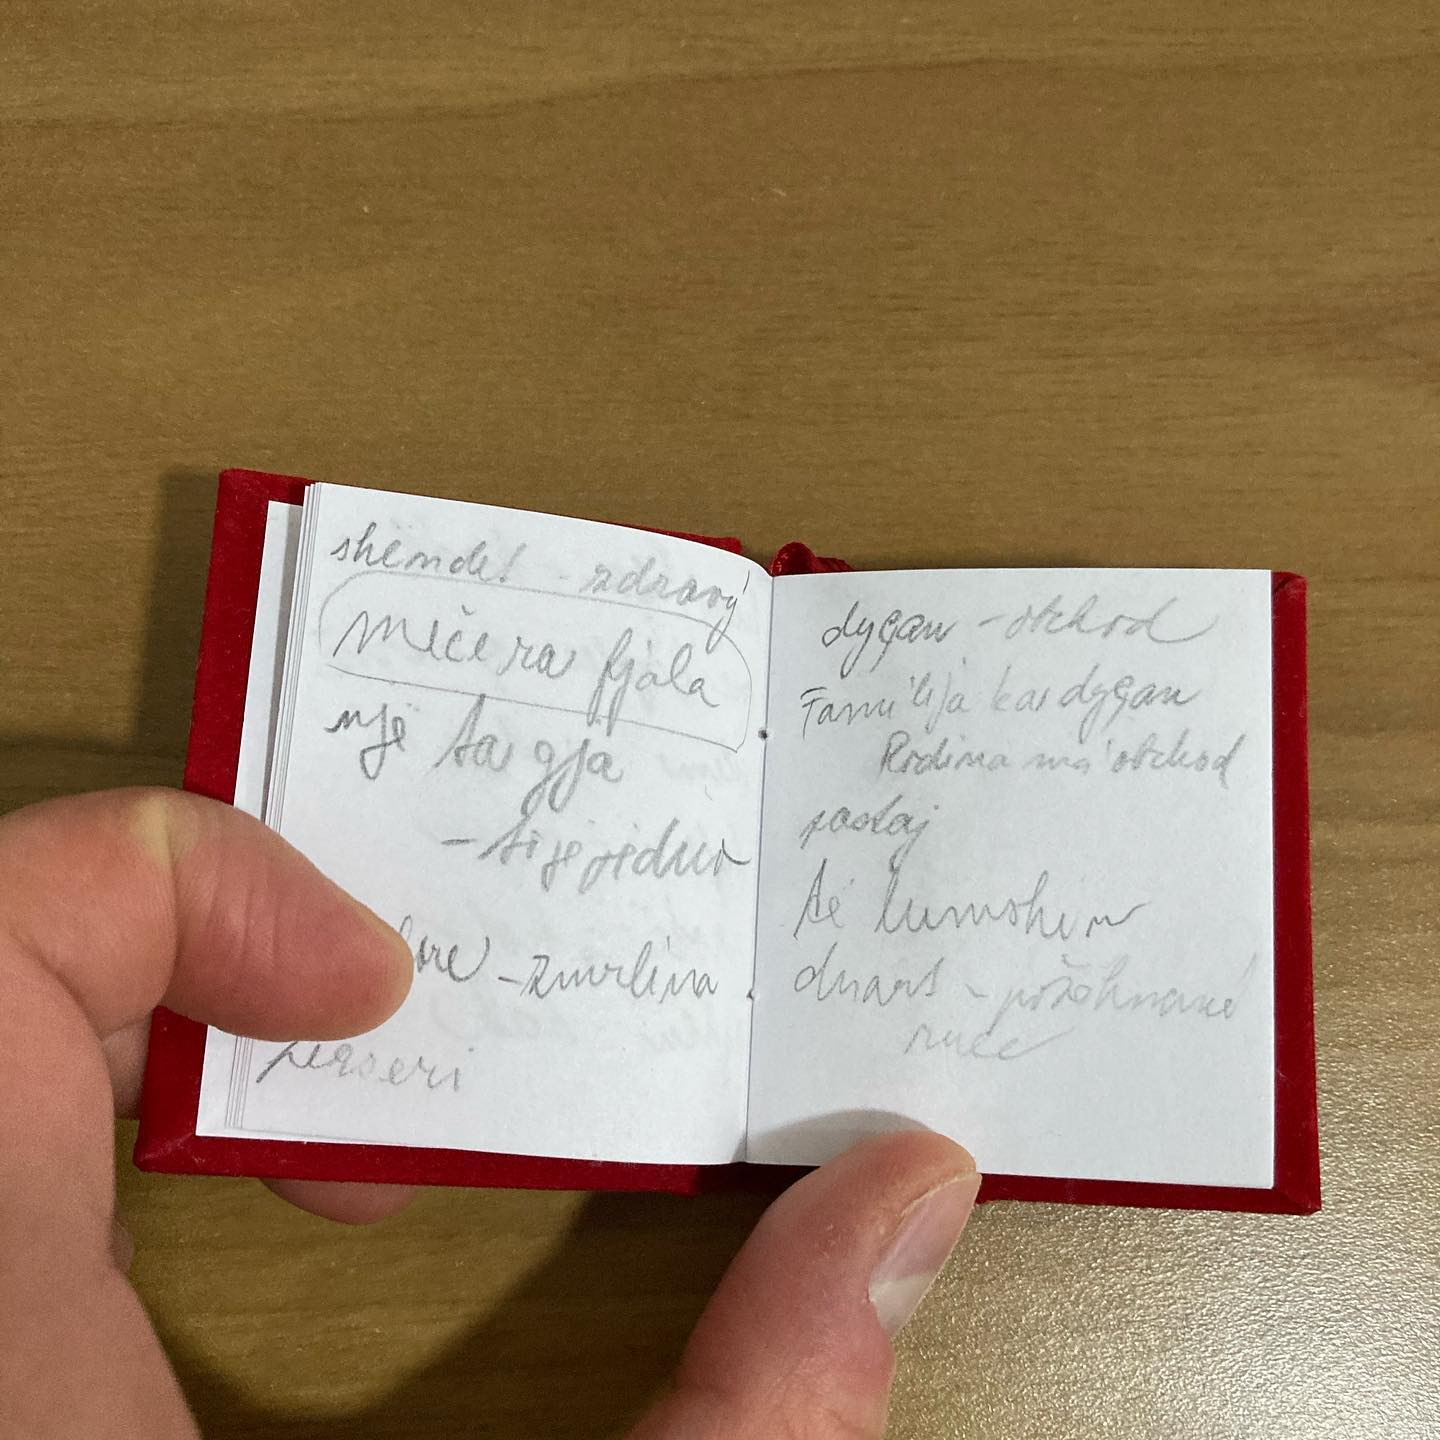 shëndet - zdravý
meče ra fjala
një ta gja
- 
- zmrlina
perseri
dyqan - obchod
Familija ka dyqan
Rodina má obchod
pastaj
të lumshin
duart - požehnané
ruce